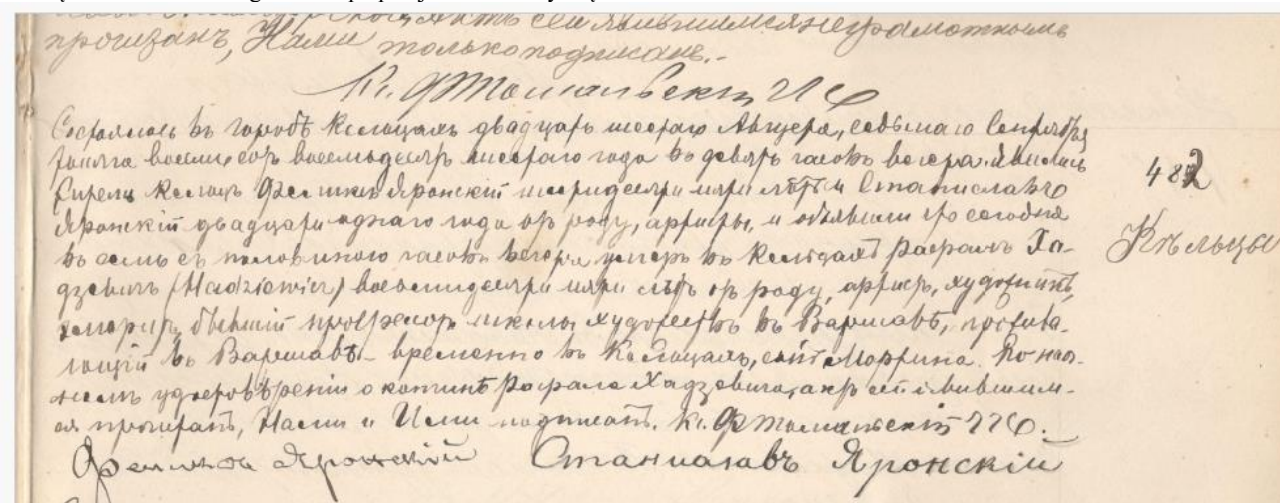 прочитанъ, Нами только подписанъ.-
482
Кѣльцы
Состоялось въ городѣ Кельцахъ двадцать шестаго Августа, седьмаго Сентября
тысяча восемьсотъ восемьдесятъ шестаго года въ девять часовъ вечера. Явились
Феликсъ Яронскій тридцати пяти лѣтъ и Станиславъ
Яронскій двадцати однаго года отъ роду, артисты, и объявили что сегодня
въ семь съ половиною часовъ вечера умеръ въ Кельцахъ Рафаилъ Ха-
дзевичъ (Hadziewicz) восьмидесяти пяти лѣтъ отъ роду, артистъ, художникъ,
бывшій профессоръ школы художествъ въ Варшавѣ, прожива-
ющій въ Варшавѣ - временно въ Кельцахъ, сынъ Мартина. По наст-
оящемъ удостовѣреніи о кончинѣ Рафаила Хадзевича, актъ сей явившим-
ся прочитанъ, Нами и Ими подписанъ.
Феликсъ Яронскій Станиславъ Яронскій